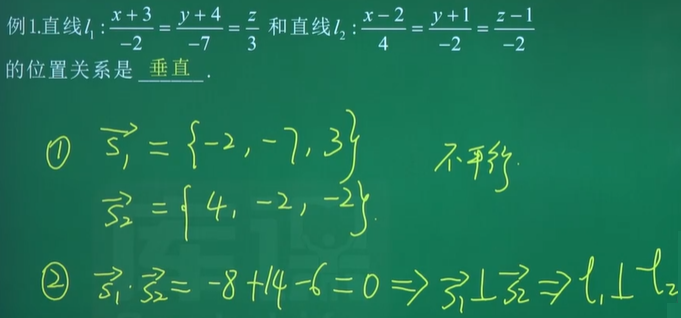 例1.直线l₁: (x+3)/(-2) = (y+4)/(-7) = z/3 和直线l₂: (x-2)/4 = (y+1)/(-2) = (z-1)/(-2)
的位置关系是 垂直 .
① s₁⃗ = {-2, -7, 3} 不平行.
s₂⃗ = {4, -2, -2}.
② s₁⃗·s₂⃗ = -8+14-6=0 => s₁⃗⊥s₂⃗ => l₁⊥l₂